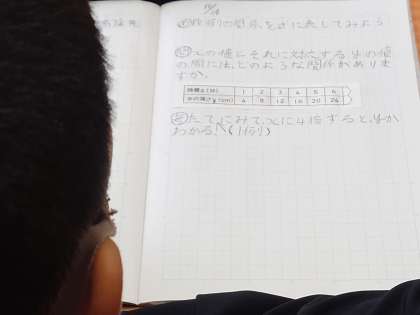 比例の関係を式に表してみよう
xの値とそれに対応するyの値
の間には、どのような関係がありま
すか。
時間x(分) 1 2 3 4 5 6
水の深さy(cm) 4 8 12 16 20 24
たてにみて、xに4倍すると、yが
わかる。(1例)